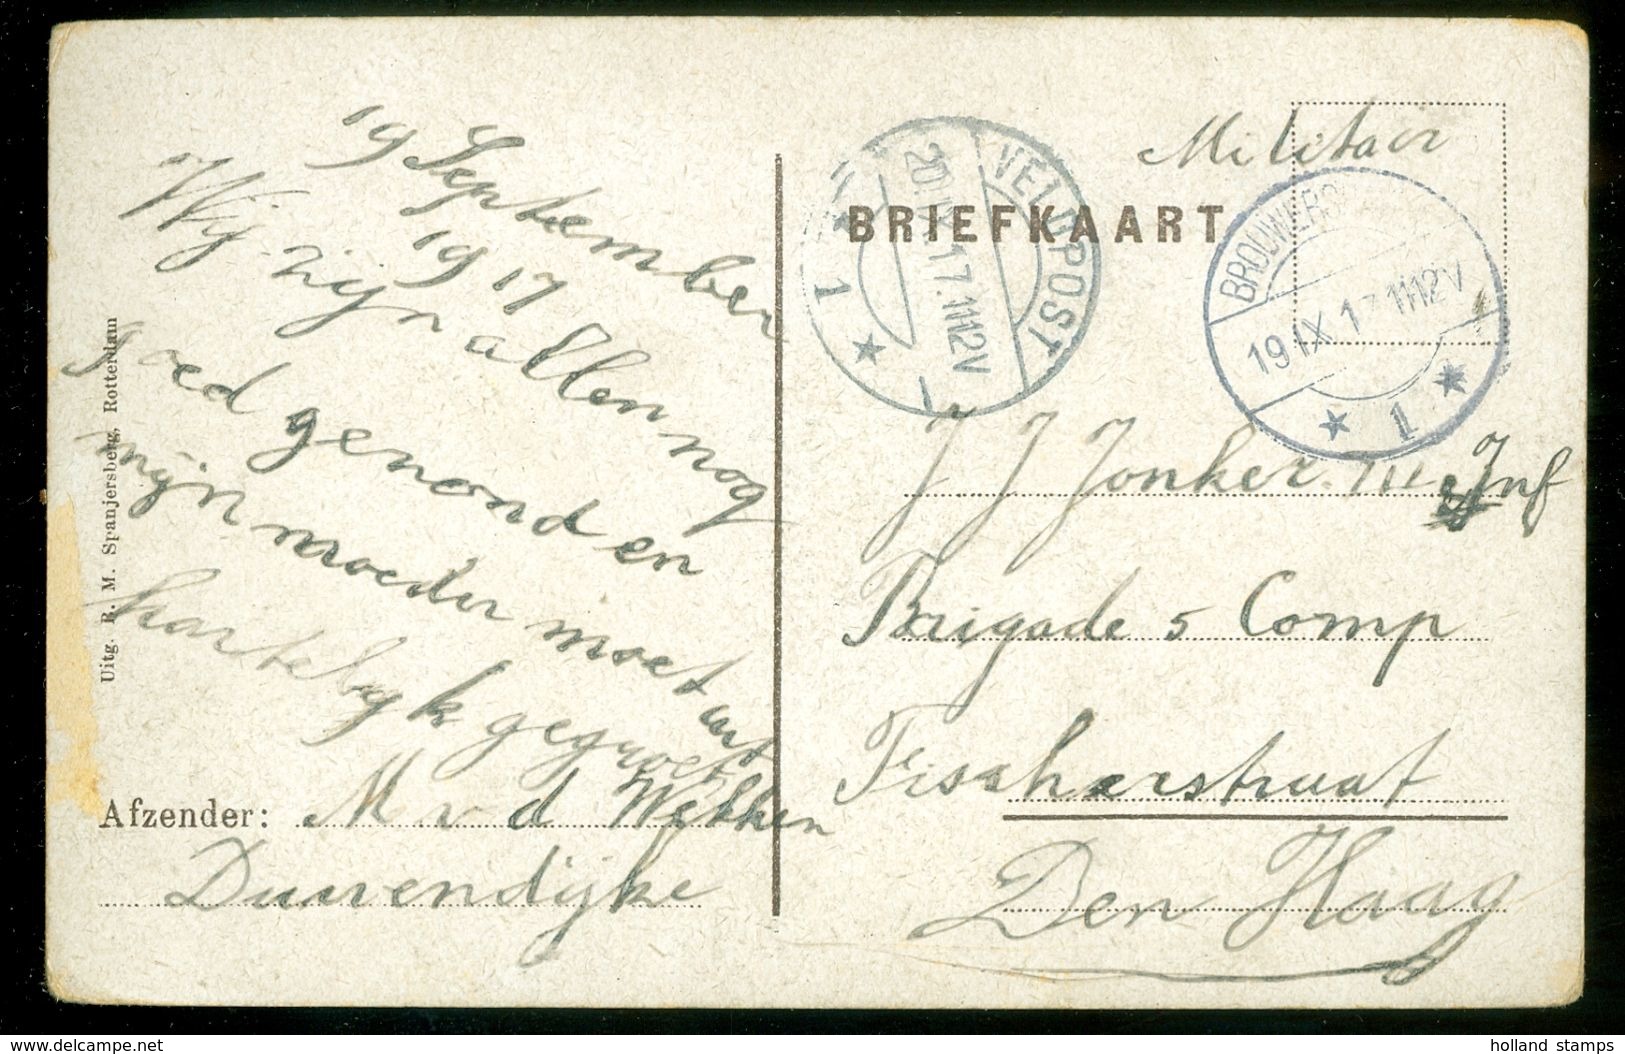 19 September
1917
Wij zijn allen nog
goed genond en
mijn moeder moet u
hartelijk gegroet
Uitg. R. M. Spanjersberg, Rotterdam
Afzender: M v d Wekken
Duivendijke
Militair
BRIEFKAART
VELDPOST
20 IX 17. 11-12V
1
BROUWERS
19 IX 17 11-12V
1
J J Jonker III Inf
Brigade 5 Comp
Fischerstraat
Den Haag
delcampe.net
holland stamps